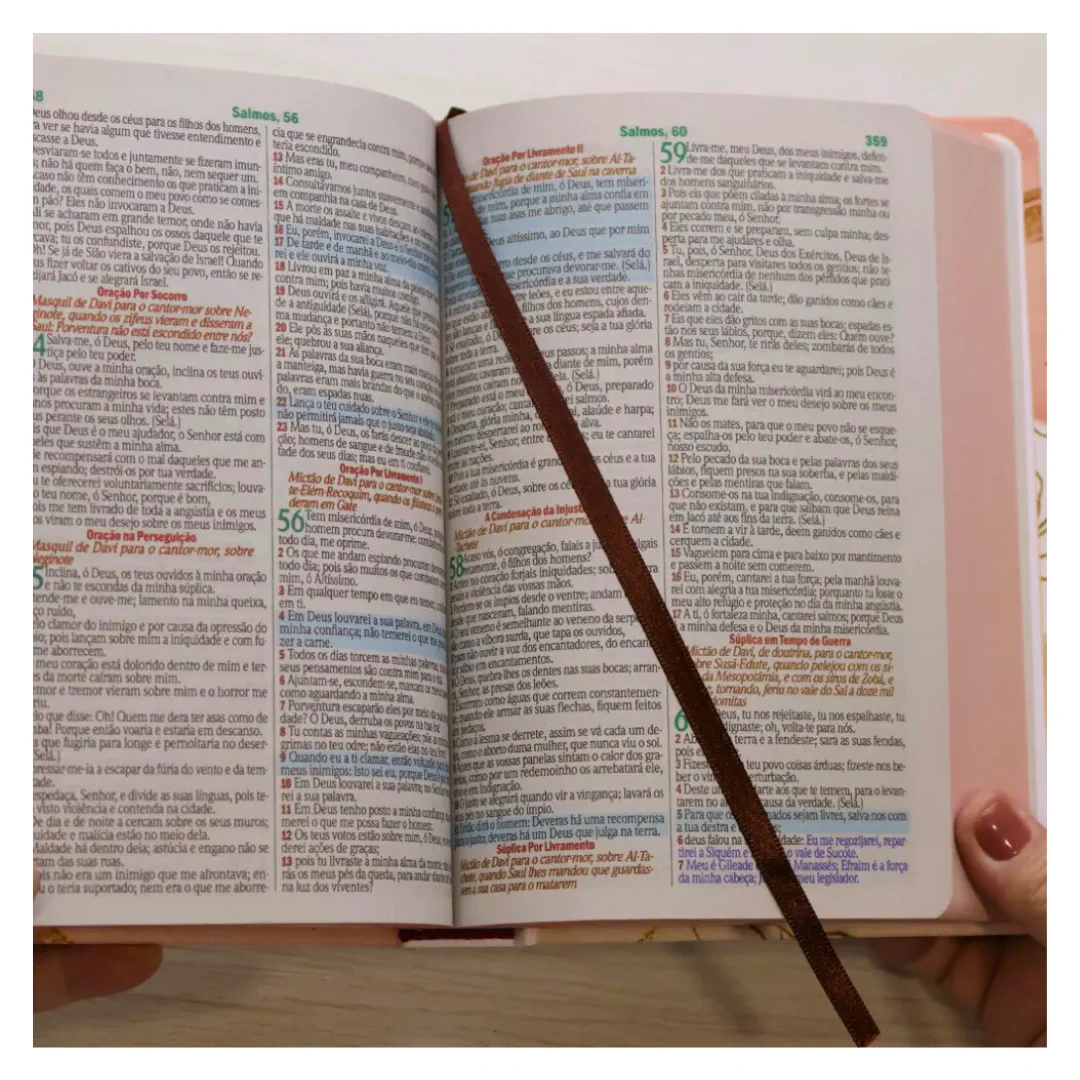 58
Salmos, 56
eus olhou desde os céus para os filhos dos homens,
a ver se havia algum que tivesse entendimento e
scasse a Deus.
esviaram-se todos e juntamente se fizeram imun-
s; não há quem faça o bem, não, nem sequer um.
caso não têm conhecimento os que praticam a ini-
dade, os quais comem o meu povo como se comes-
n pão? Eles não invocaram a Deus.
li se acharam em grande temor, onde não havia
nor, pois Deus espalhou os ossos daquele que te
cava; tu os confundiste, porque Deus os rejeitou.
h! Se já de Sião viera a salvação de Israel! Quando
us fizer voltar os cativos do seu povo, então se re-
zijará Jacó e se alegrará Israel.
Oração Por Socorro
Masquil de Davi para o cantor-mor sobre Ne-
ginote, quando os zifeus vieram e disseram a
Saul: Porventura não está escondido entre nós?
4 Salva-me, ó Deus, pelo teu nome e faze-me jus-
tiça pelo teu poder.
Deus, ouve a minha oração, inclina os teus ouvi-
às palavras da minha boca.
orque os estrangeiros se levantam contra mim e
nos procuram a minha vida; estes não têm posto
us perante os seus olhos. (Selá.)
is que Deus é o meu ajudador, o Senhor está com
eles que sustêm a minha alma.
e recompensará com o mal daqueles que me an-
n espiando; destrói-os por tua verdade.
u te oferecerei voluntariamente sacrifícios; louva-
o teu nome, ó Senhor, porque é bom,
ois me tem livrado de toda a angústia e os meus
os viram o meu desejo sobre os meus inimigos.
Oração na Perseguição
Masquil de Davi para o cantor-mor, sobre
Neginote
5 Inclina, ó Deus, os teus ouvidos à minha oração
e não te escondas da minha súplica.
tende-me e ouve-me; lamento na minha queixa,
ço ruído,
elo clamor do inimigo e por causa da opressão do
io; pois lançam sobre mim a iniquidade e com fu-
me aborrecem.
meu coração está dolorido dentro de mim e ter-
s da morte caíram sobre mim.
emor e tremor vieram sobre mim e o horror me
riu.
lo que disse: Oh! Quem me dera ter asas como de
nba! Porque então voaria e estaria em descanso.
s que fugiria para longe e pernoitaria no deser-
Selá.)
pressar-me-ia a escapar da fúria do vento e da tem-
ade.
espedaça, Senhor, e divide as suas línguas, pois te-
visto violência e contenda na cidade.
De dia e de noite a cercam sobre os seus muros;
uidade e malícia estão no meio dela.
Maldade há dentro dela; astúcia e engano não se
tam das suas ruas.
ois não era um inimigo que me afrontava; en-
o teria suportado; nem era o que me aborre-
cia que se engrandecia contra mim, porque
teria escondido.
13 Mas eras tu, meu companheiro, meu
íntimo amigo.
14 Consultávamos juntos suavemente e
em companhia na casa de Deus.
15 A morte os assalte e vivos desçam ao
que há maldade nas suas habitações e no
16 Eu, porém, invocarei a Deus e o Senhor me
17 De tarde e de manhã e ao meio-dia
rei e ele ouvirá a minha voz.
18 Livrou em paz a minha alma da
contra mim; pois havia muitos comigo.
19 Deus ouvirá e os afligirá. Aquele que
de a antiguidade (Selá), porque não há
ma mudança e portanto não temem a Deus.
20 Ele pôs as suas mãos naqueles que
ele; quebrou a sua aliança.
21 As palavras da sua boca eram mais
a manteiga, mas havia guerra no seu coração
palavras eram mais brandas do que o azeite
do, eram espadas nuas.
22 Lança o teu cuidado sobre o Senhor e ele
não permitirá jamais que o justo seja
23 Mas tu, ó Deus, os farás descer ao poço
ção; homens de sangue e de fraude não
fade dos seus dias; mas eu em ti confiarei.
Oração Por Livramento I
Mictão de Davi para o cantor-mor sobre
te-Elém-Recoquim, quando os
deram em Gate
56 Tem misericórdia de mim, ó Deus,
homem procura devorar-me;
todo dia, me oprime.
2 Os que me andam espiando procuram
todo dia; pois são muitos os que combatem
mim, ó Altíssimo.
3 Em qualquer tempo em que eu temer,
em ti.
4 Em Deus louvarei a sua palavra, em Deus
minha confiança; não temerei o que me
zer a carne.
5 Todos os dias torcem as minhas palavras;
seus pensamentos são contra mim para o
6 Ajuntam-se, escondem-se, marcam os
como aguardando a minha alma.
7 Porventura escaparão eles por meio da sua
dade? Ó Deus, derruba os povos na tua
8 Tu contas as minhas vagueações; põe as
grimas no teu odre; não estão elas no teu
9 Quando eu a ti clamar, então voltarão
meus inimigos: isto sei eu, porque Deus
10 Em Deus louvarei a sua palavra; no Senhor
rei a sua palavra.
11 Em Deus tenho posto a minha confiança;
merei o que me possa fazer o homem.
12 Os teus votos estão sobre mim, ó Deus,
derei ações de graças;
13 pois tu livraste a minha alma da morte;
rás os meus pés da queda, para andar diante
na luz dos viventes?
Salmos, 60
359
Oração Por Livramento II
de Davi para o cantor-mor, sobre Al-Ta-
quando fugia de diante de Saul na caverna
misericórdia de mim, ó Deus, tem miseri-
de mim, porque a minha alma confia em
tuas asas me abrigo, até que passem
Deus altíssimo, ao Deus que por mim
desde os céus, e me salvará do
que procurava devorar-me. (Selá.)
sericórdia e a sua verdade.
entre leões, e eu estou entre aque-
filhos dos homens, cujos den-
lanças e a sua língua espada afiada.
exaltado, ó os céus; seja a tua glória
sobre toda a terra.
Armaram uma rede us passos; a minha alma
abatida; cavaram diante de mim, porém
mesmos caíram no ela. (Selá.)
Preparado está o meu , ó Deus, preparado
o meu coração; cantarei salmos.
Desperta, glória minha, alaúde e harpa;
mesmo despertarei ao rom alva.
Louvar-te-ei, Senhor, entre os eu te cantarei
entre as nações.
Pois a tua misericórdia é grande céus e a tua
verdade até às nuvens.
Sê exaltado, ó Deus, sobre os cé a tua glória
sobre toda a terra.
A Condenação da Injust
Mictão de Davi para o cantor-mo e Al-
Tachete
58 Acaso vós, ó congregação, falais a ju ulgais
retamente, ó filhos dos homens?
no coração forjais iniquidades; sob
a violência das vossas mãos.
Perdem-se os ímpios desde o ventre; andam
desde que nasceram, falando mentiras.
O seu veneno é semelhante ao veneno da serpe
como a víbora surda, que tapa os ouvidos,
para não ouvir a voz dos encantadores, do encan
sábio em encantamentos.
Ó Deus, quebra-lhes os dentes nas suas bocas; arran-
Senhor, as presas dos leões.
Escorram como águas que correm constantemen-
quando ele armar as suas flechas, fiquem feitos
em pedaços.
Como a lesma se derrete, assim se vá cada um de-
como o aborto duma mulher, que nunca viu o sol.
Antes que as vossas panelas sintam o calor dos gra-
vetos, como por um redemoinho os arrebatará ele,
em indignação.
O justo se alegrará quando vir a vingança; lavará os
seus pés no sangue do ímpio.
Então dirá o homem: Deveras há uma recompensa
para o justo, deveras há um Deus que julga na terra.
Súplica Por Livramento
Mictão de Davi para o cantor-mor, sobre Al-Ta-
chete, quando Saul lhes mandou que guardas-
sem a sua casa para o matarem
59 Livra-me, meu Deus, dos meus inimigos, defen-
de-me daqueles que se levantam contra mim.
2 Livra-me dos que praticam a iniquidade e salva-me
dos homens sanguinários.
3 Pois eis que põem ciladas à minha alma; os fortes se
ajuntam contra mim, não por transgressão minha ou
por pecado meu, ó Senhor.
4 Eles correm e se preparam, sem culpa minha; des-
perta para me ajudares e olha.
5 Tu, pois, ó Senhor, Deus dos Exércitos, Deus de Is-
rael, desperta para visitares todos os gentios; não te-
nhas misericórdia de nenhum dos pérfidos que prati-
cam a iniquidade. (Selá.)
6 Eles vêm ao cair da tarde; dão ganidos como cães e
rodeiam a cidade.
7 Eis que eles dão gritos com as suas bocas; espadas es-
tão nos seus lábios, porque, dizem eles: Quem ouve?
8 Mas tu, Senhor, te rirás deles; zombarás de todos
os gentios;
9 por causa da sua força eu te aguardarei; pois Deus é
a minha alta defesa.
10 O Deus da minha misericórdia virá ao meu encon-
tro; Deus me fará ver o meu desejo sobre os meus
inimigos.
11 Não os mates, para que o meu povo não se esque-
ça; espalha-os pelo teu poder e abate-os, ó Senhor,
nosso escudo.
12 Pelo pecado da sua boca e pelas palavras dos seus
lábios, fiquem presos na sua soberba, e pelas maldi-
ções e pelas mentiras que falam.
13 Consome-os na tua indignação, consome-os, para
que não existam, e para que saibam que Deus reina
em Jacó até aos fins da terra. (Selá.)
14 E tornem a vir à tarde, deem ganidos como cães e
cerquem a cidade.
15 Vagueiem para cima e para baixo por mantimento
e passem a noite sem comerem.
16 Eu, porém, cantarei a tua força; pela manhã louva-
rei com alegria a tua misericórdia; porquanto tu foste o
meu alto refúgio e proteção no dia da minha angústia.
17 A ti, ó fortaleza minha, cantarei salmos; porque Deus
a minha defesa e o Deus da minha misericórdia.
Súplica em Tempo de Guerra
Mictão de Davi, de doutrina, para o cantor-mor,
obre Susã-Edute, quando pelejou com os si-
da Mesopotâmia, e com os siros de Zobá, e
, tornando, feriu no vale do Sal a doze mil
domitas
6 eus, tu nos rejeitaste, tu nos espalhaste, tu
dignaste; oh, volta-te para nós.
2 Ab terra e a fendeste; sara as suas fendas,
pois e
3 Fizest teu povo coisas árduas; fizeste-nos be-
ber o vin erturbação.
4 Deste um arte aos que te temem, para o levan-
tarem no a ausa da verdade. (Selá.)
5 Para que o uados sejam livres, salva-nos com
a tua destra e
6 deus falou na dade: Eu me regozijarei, repar
tirei a Siquém e o vale de Sucote.
7 Meu é Gileade Manassés; Efraim é a força
da minha cabeça; J meu legislador.